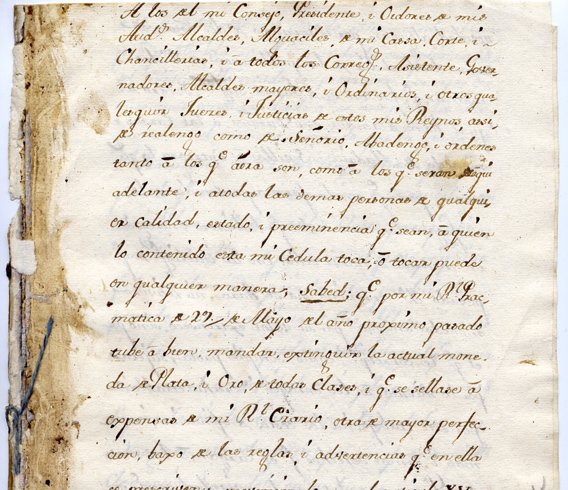 A los de mi Consejo, Presidente, i Oidores de mis
Aud.s Alcaldes, Alguaciles de mi Cassa, Corte, i
Chancillerias, i a todos los Correg.s, Asistente, Gover-
nadores, Alcaldes mayores, i Ordinarios, i otros qua-
lesquier Jueces, i Justicias de estos mis Reynos assi
de realengo como de Señorio, Abadengo, i ordenes
tanto à los q.e aora son, como à los q.e seran de aqui
adelante, i a todas las demas personas de qualqui-
er calidad, estado, i preeminencia q.e sean, à quien
lo contenido esta mi Cedula toca, ò tocar puede
en qualquier manera; Sabed; q.e por mi R.l Prac-
matica de 29 de Mayo del año proximo pasado
tube à bien, mandar, extinguir la actual mone-
da de Plata, i Oro, de todas Clases, i q.e se sellase à
expensas de mi R.l Erario, otra de mayor perfec-
cion, baxo de las reglas, i advertencias q.e en ella